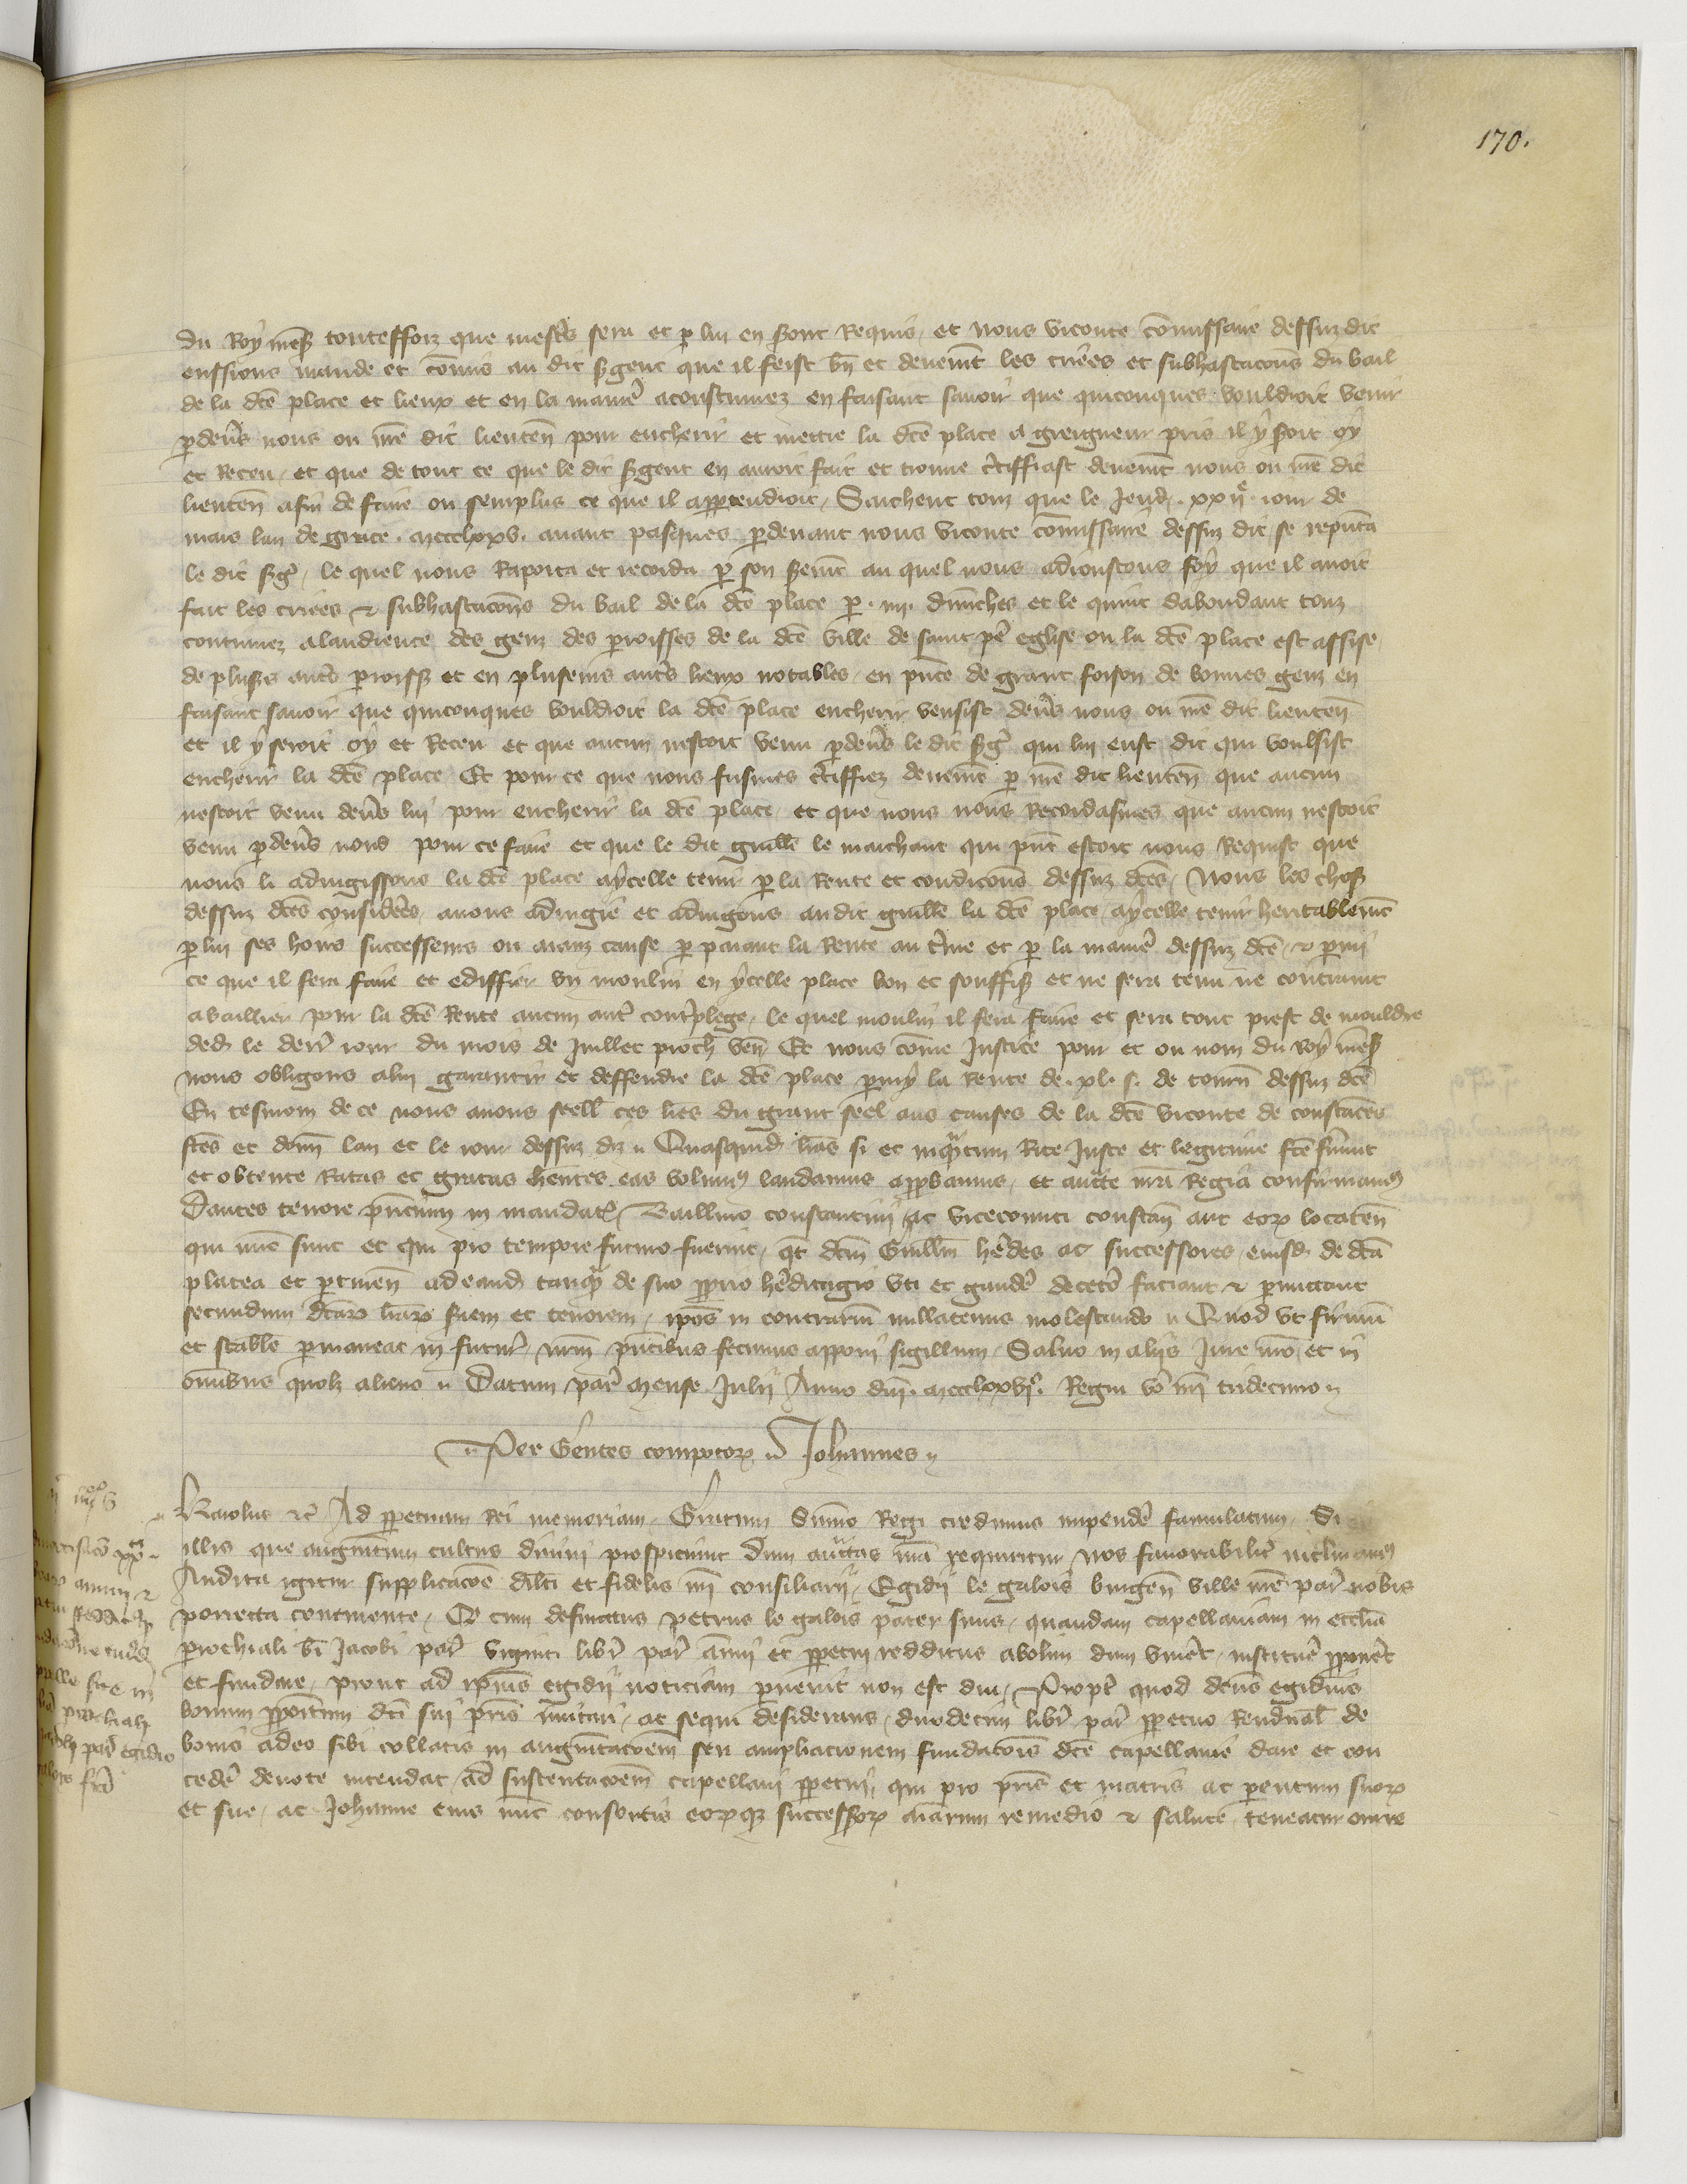 170.
du Roy mess toutesfoiz que mests sera et p lui en soit Requis et nous viconte comissaire dessuz dit
eussions mande et comis au dit sgent que il feist bn et deuemt les criees et subhastacons du bail
de la dce place et lieux et en la manie acoustumez en faisant savoir que quiconques vouldroit venir
pdeus nous ou nre dit lieuten pour encherir et mettre la dce place a greigneur pris il y soit oy
et Receu et que de tout ce que le dit sgent en auroit fait et trouue ctiffiast deuemt nous ou nre dit
lieuten afin de faire ou semplus ce que il apptendroit Sachent touz que le Jeud xxije iour de
mars lan de grace mccclxxv auant pasques pdeuant nous viconte comissaire dessuz dit se repnta
le dit sgt le quel nous Raporta et recorda p son semt au quel nous adioustons foy que il auoit
fait les criees & subhastacons du bail de la dce place p iiij dimches et le quint dabondant touz
continuez alaudience des genz des paroisses de la dce ville de saint pe eglise ou la dce place est assise
de pluss auts paroiss et en pluseurs auts lieux notables en pnce de grant foison de bonnes genz en
faisant savoir que quiconques vouldroit la dce place encherir vensist deus nous ou nre dit lieuten
et il y seroit oy et Receu et que aucun nestoit venu pdeus le dit sgt qui lui eust dit qui voulsist
encherir la dce place Et pour ce que nous fusmes ctiffiez deuemt p nre dit lieuten que aucun
nestoit venu deus lui pour encherir la dce place et que nous nous Recordasmes que aucun nestoit
venu pdeus nous pour ce faire et que le dit guille le marchant qui pnt estoit nous Requist que
nous li adiugissions la dce place aycelle tenir p la Rente et condicons dessuz dces Nous les choss
dessuz dces considees auons adiugie et adiugons au dit guille la dce place aycelle tenir heritablemt
p lui ses hoirs successeurs ou aianz cause p paiant la Rente au tme et p la manie dessuz dce & pmi
ce que il fera faire et ediffier vn moulin en ycelle place bon et souffiss et ne sera tenu ne contraint
abaillier pour la dce Rente aucun aut contplege le quel moulin il fera faire et sera tout prest de mouldre
ded le dern iour du mois de Juillet proch ven Et nous come Justice pour et ou nom du roy mess
nous obligons alui garantir et deffendre la dce place pmy la Rente de xl s de tourn dessuz dce
En tesmoin de ce nous auons seelle ces lres du grant seel aus causes de la dce viconte de coustances
fces et donn lan et le iour dessuz diz Quasquid lras si et inqtum Rite Juste et legitime fce fuerint
et obtente Ratas et gratas hentes eas volumus laudamus appbamus et aucte nra Regia confirmamus
Dantes tenore pncium in mandatis Baillivo constantini ac vicecomiti constan aut eorum locaten
qui nunc sunt et qui pro tempore futuro fuerint qt dcm Guillm hedes ac successores eiusd de dca
platea et ptinen ad eand tanq de suo pprio heditagio vti et gaude deceto faciant & pmittant
secundum dcarum lrarum siem et tenorem ipos in contrarium nullatenus molestando Quod vt firmum
et stabile pmaneat in futur nrm pntibus fecimus apponi sigillum Saluo in alijs Jure nro et in
omibus quolz alieno Datum par mense Julij Anno dni mccclxxvjo Regni vo nri tridecimo
Per Gentes compotorum Johannes
Karolus etc Ad ppetuam Rei memoriam Gratum Summo Regi credimus impende famulatum Si
illis que augmtum cultus diuini prospiciunt dum auctas nra requiritur nos fauorabilit inclinamus
Audita igitur supplicacoe dilti et fidelis nri consiliarij Egidij le galois burgen ville nre par nobis
porrecta continente Qd cum defunctus petrus le galois pater suus quandam capellaniam in ecclia
prochiali bi Jacobi par viginti libr par annui et ppetui redditus abolim dum viuet instituere pponet
et fundare prout ad ipius egidij noticiam puenit non est diu Propt quod dcus egidius
bonum ppoitum dci sui pris imitari ac sequi desiderans duodecim libr par ppetuo Renduales de
bonis adeo sibi collatis in augmtacoem seu ampliacionem fundacois dce capellanie dare et con
cede deuote intendat ad sustentacoem capellani ppetui qui pro pris et matris ac parentum suorum
et sue ac Johanne eius nunc consortis eorumque successorum aiarum remedio & salute teneatur orare